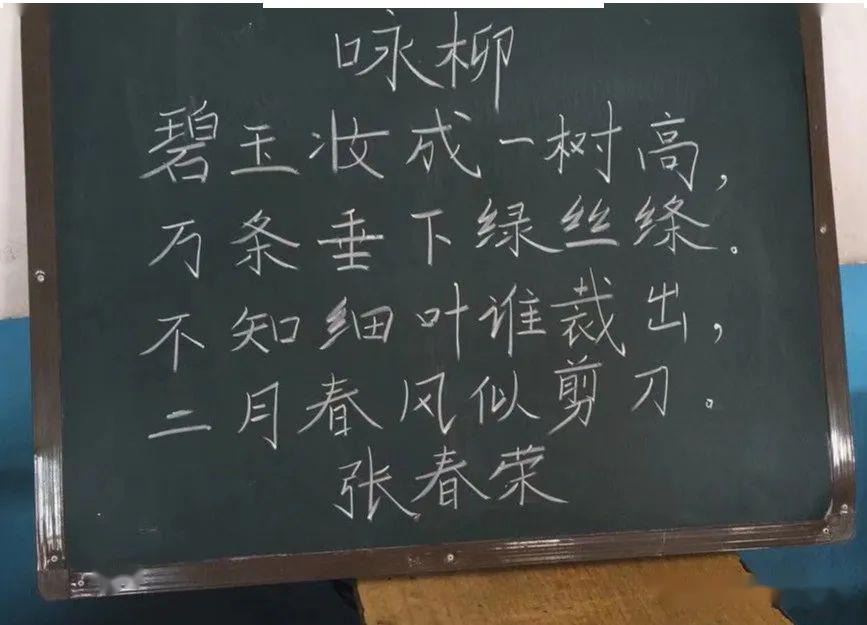 咏柳
碧玉妆成一树高，
万条垂下绿丝绦。
不知细叶谁裁出，
二月春风似剪刀。
张春荣